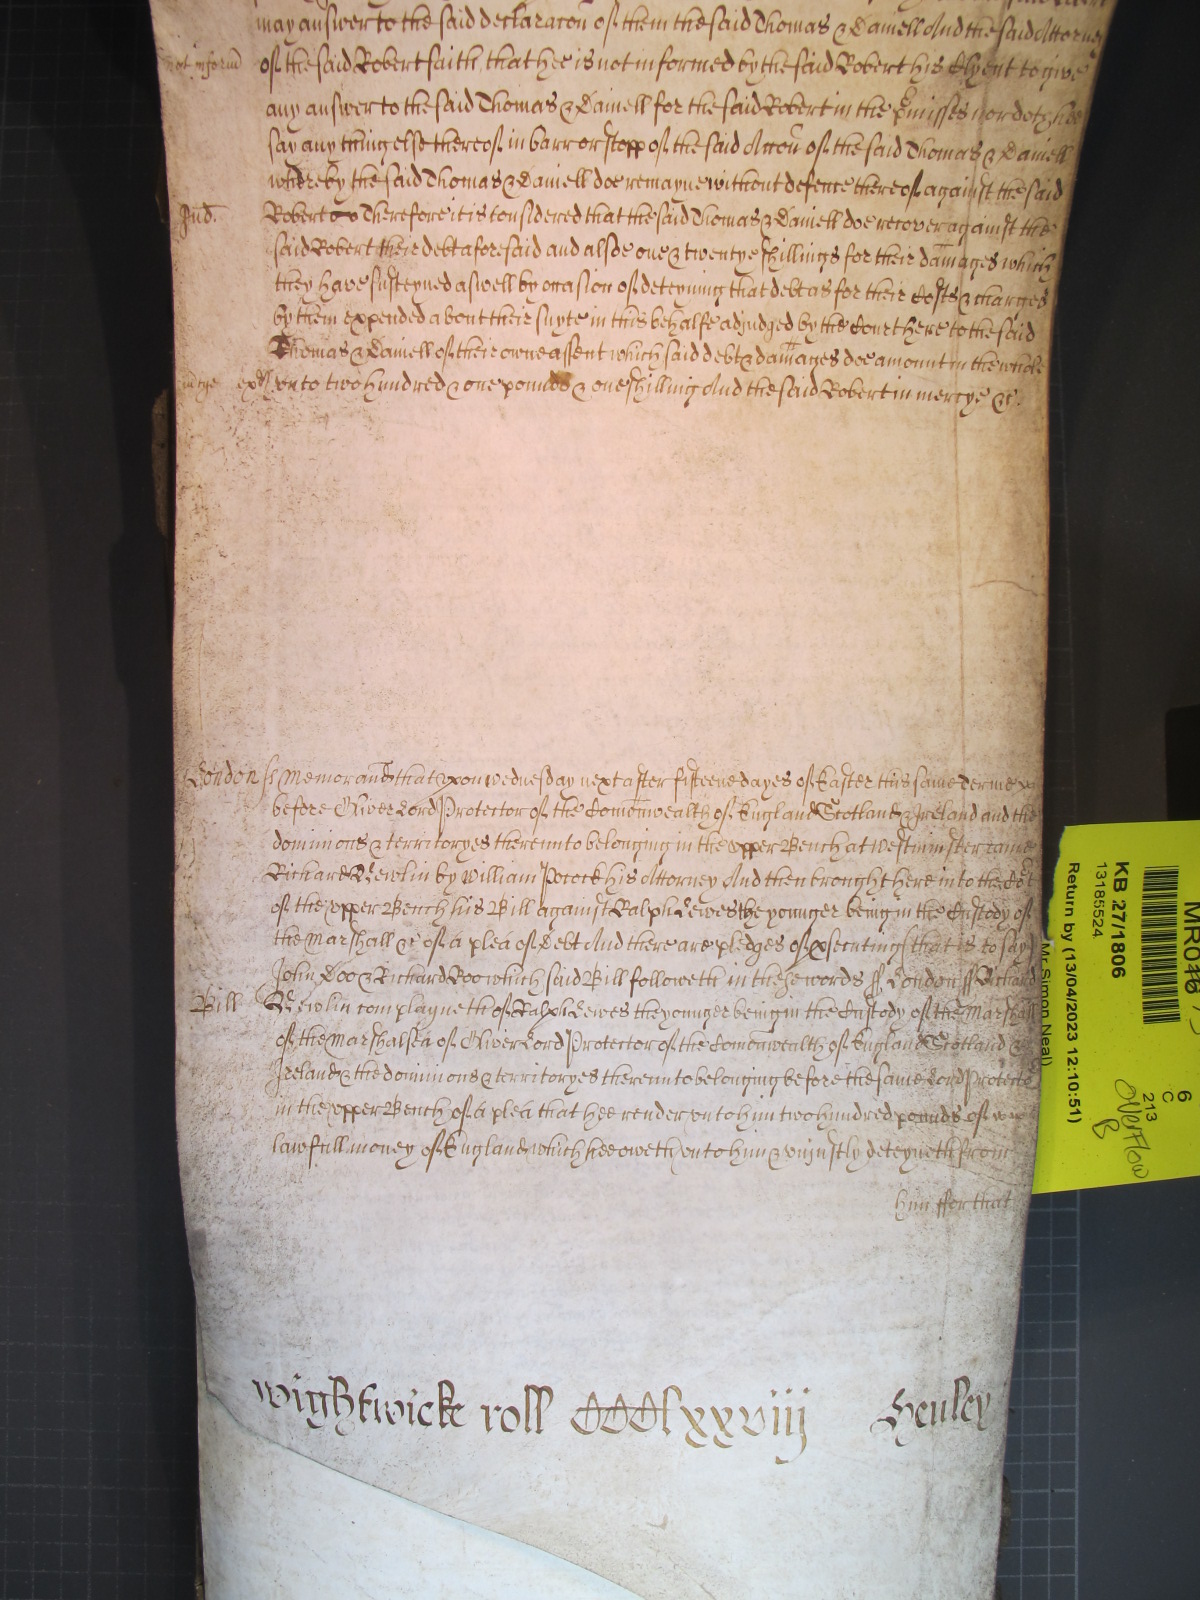 may answer to the said declaracon of them the said Thomas & Daniell And the said Attorney
not informd of the said Robert saith that hee is not informed by the said Robert his Clyent to give
any answer to the said Thomas & Daniell for the said Robert in the pmisses nor doth hee
say any thing else thereof in barr or stopp of the said Accon of the said Thomas & Daniell
whereby the said Thomas & Daniell doe remayne without defence thereof against the said
Jud. Robert Therefore it is considered that the said Thomas & Daniell doe recover against the
said Robert their debt aforesaid and alsoe one & twentye shillings for their damages which
they have susteyned aswell by occasion of deteyning that debt as for their Costs & charges
by them expended about their suyte in this behalfe adjudged by the Court here to the said
Thomas & Daniell of their owne assent which said debt & damages doe amount in the whole
vnto two hundred & one pounds & one shilling And the said Robert in mercye &c.
London ss Memorand that vpon wednesday next after fifteene dayes of Easter this same Terme
before Oliver Lord Protector of the Comonwealth of England Scotland & Ireland and the
dominions & territoryes thereunto belonging in the vpper Bench at Westminster came
Richard Newlin by William Pocock his Attorney And then brought here into the Cort
of the vpper Bench his Bill against Ralph Lewes the younger being in the Custody of
the Marshall &c of a plea of Debt And there are pledges of prosecuting that is to say
John Doo & Richard Roo which said Bill followeth in these words ss London ss Richard
Bill Newlin complayneth of Ralph Lewes the younger being in the Custody of the Marshall
of the Marshalsea of Oliver Lord Protector of the Comonwealth of England Scotland &
Ireland & the dominions & territoryes thereunto belonging before the same Lord Protector
in the vpper Bench of a plea that hee render vnto him two hundred pounds of
lawfull money of England which hee oweth vnto him & vniustly deteyneth from
him ffor that
Wightwicke roll CCClxxviij Henley
KB 27/1806
13185524
Return by (13/04/2023 12:10:51)
Mr Simon Neal)
6
C
213
Overflow
B